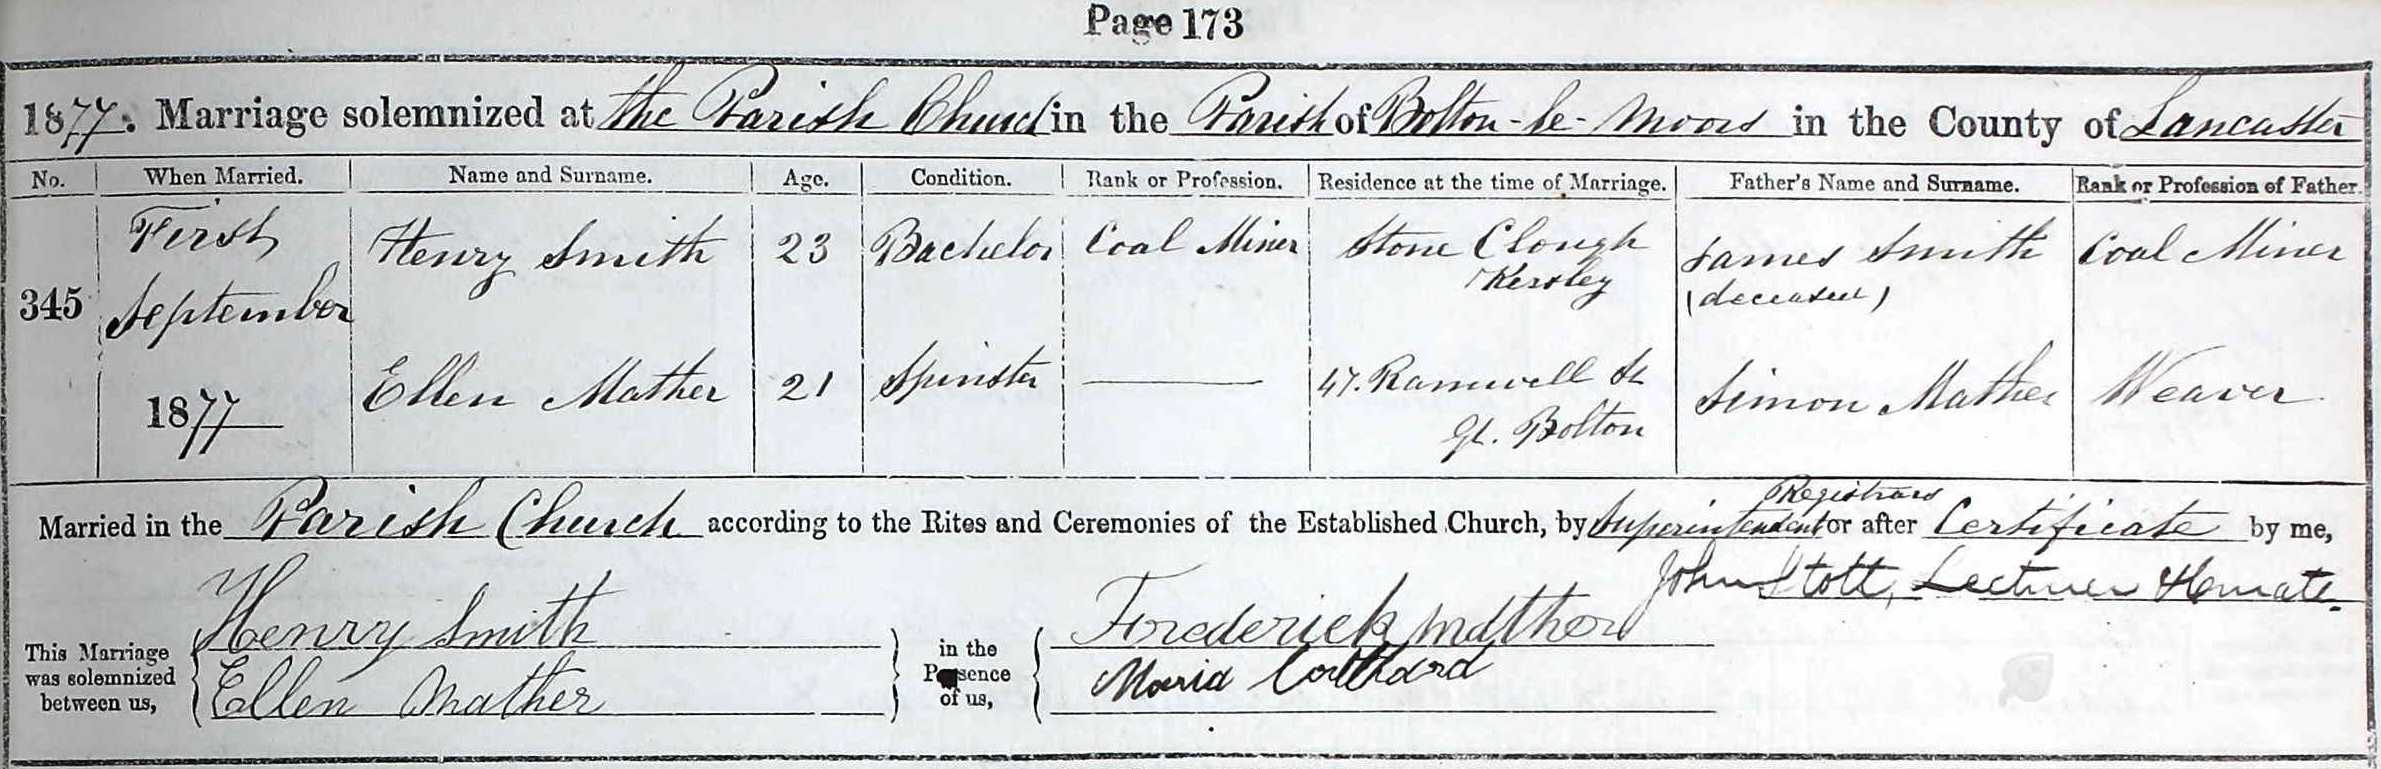 Page 173
1877. Marriage solemnized at the Parish Church in the Parish of Bolton-le-Moors in the County of Lancaster
No. When Married. Name and Surname. Age. Condition. Rank or Profession. Residence at the time of Marriage. Father's Name and Surname. Rank or Profession of Father.
345 First September 1877
Henry Smith 23 Bachelor Coal Miner Stone Clough Kersley James Smith (deceased) Coal Miner
Ellen Mather 21 Spinster 47. Ramwell St Gt. Bolton Simon Mather Weaver
Registrars
Married in the Parish Church according to the Rites and Ceremonies of the Established Church, by Superintendent or after Certificate by me,
John Stott, Lecturer
This Marriage was solemnized between us, Henry Smith Ellen Mather in the Presence of us, Frederick Mather Maria